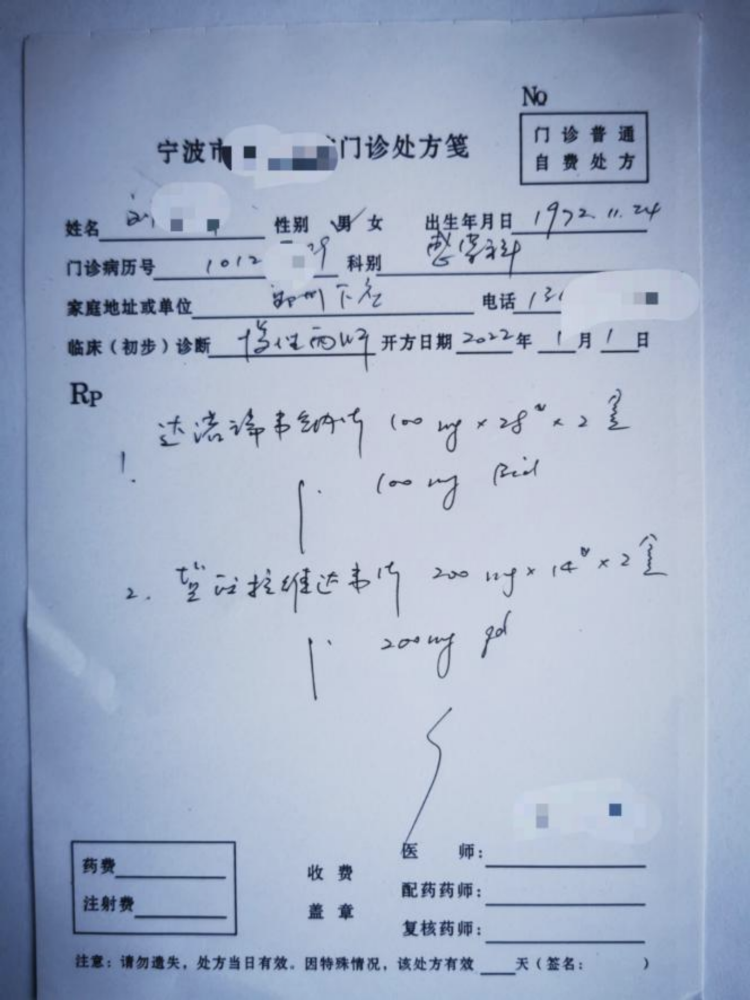 No
门诊普通
自费处方
宁波市 门诊处方笺
姓名 性别 男 女 出生年月日 1972.11.24
门诊病历号 1012 29 科别 感染科
家庭地址或单位 鄞州下应 电话 13
临床（初步）诊断 慢性丙肝 开方日期 2022年 1月 1日
Rp
1. 达诺瑞韦钠片 100mg×28#×2盒
100mg Bid
2. 盐酸拉维达韦片 200mg×14#×2盒
200mg qd
药费
注射费
收费
盖章
医师：
配药药师：
复核药师：
注意：请勿遗失，处方当日有效。因特殊情况，该处方有效 天（签名： ）